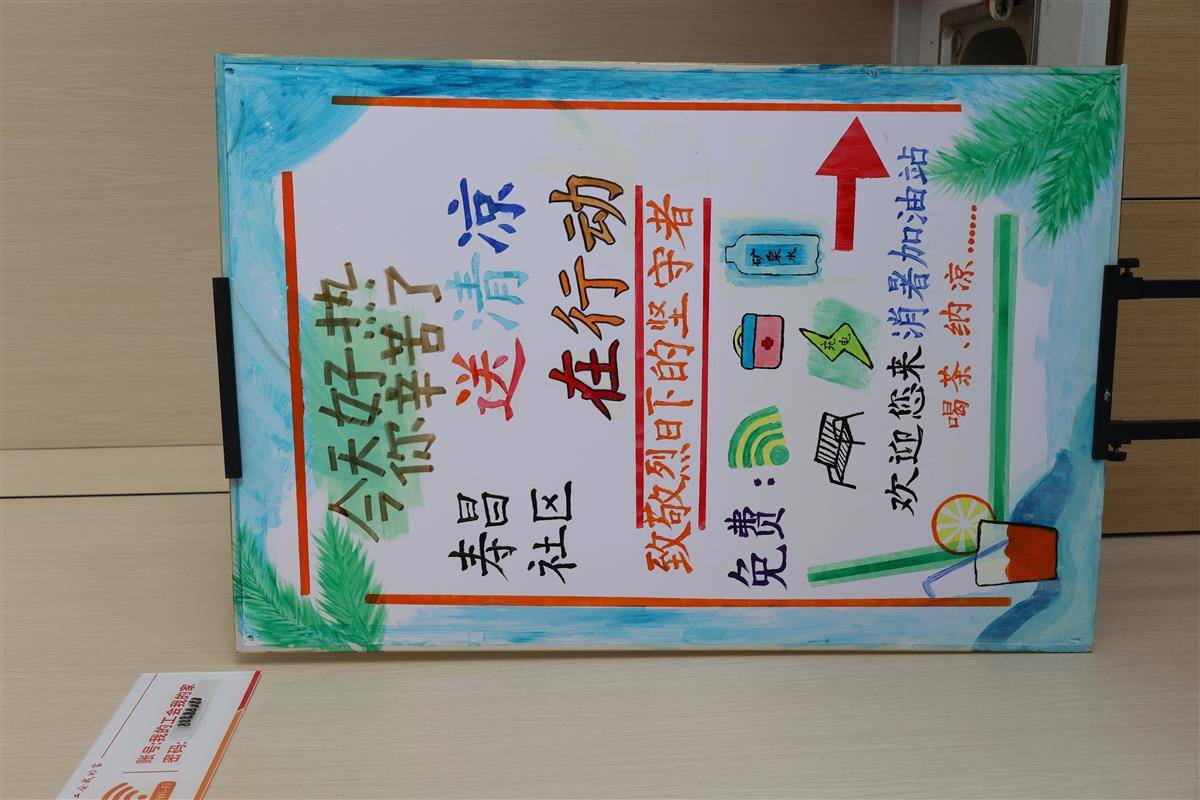 今天好热
你辛苦了
寿昌
社区
送清凉
在行动
致敬烈日下的坚守者
免费：
矿泉水
充电
欢迎您来消暑加油站
喝茶、纳凉……
账号:我的工会我的家
密码:
Wi-Fi